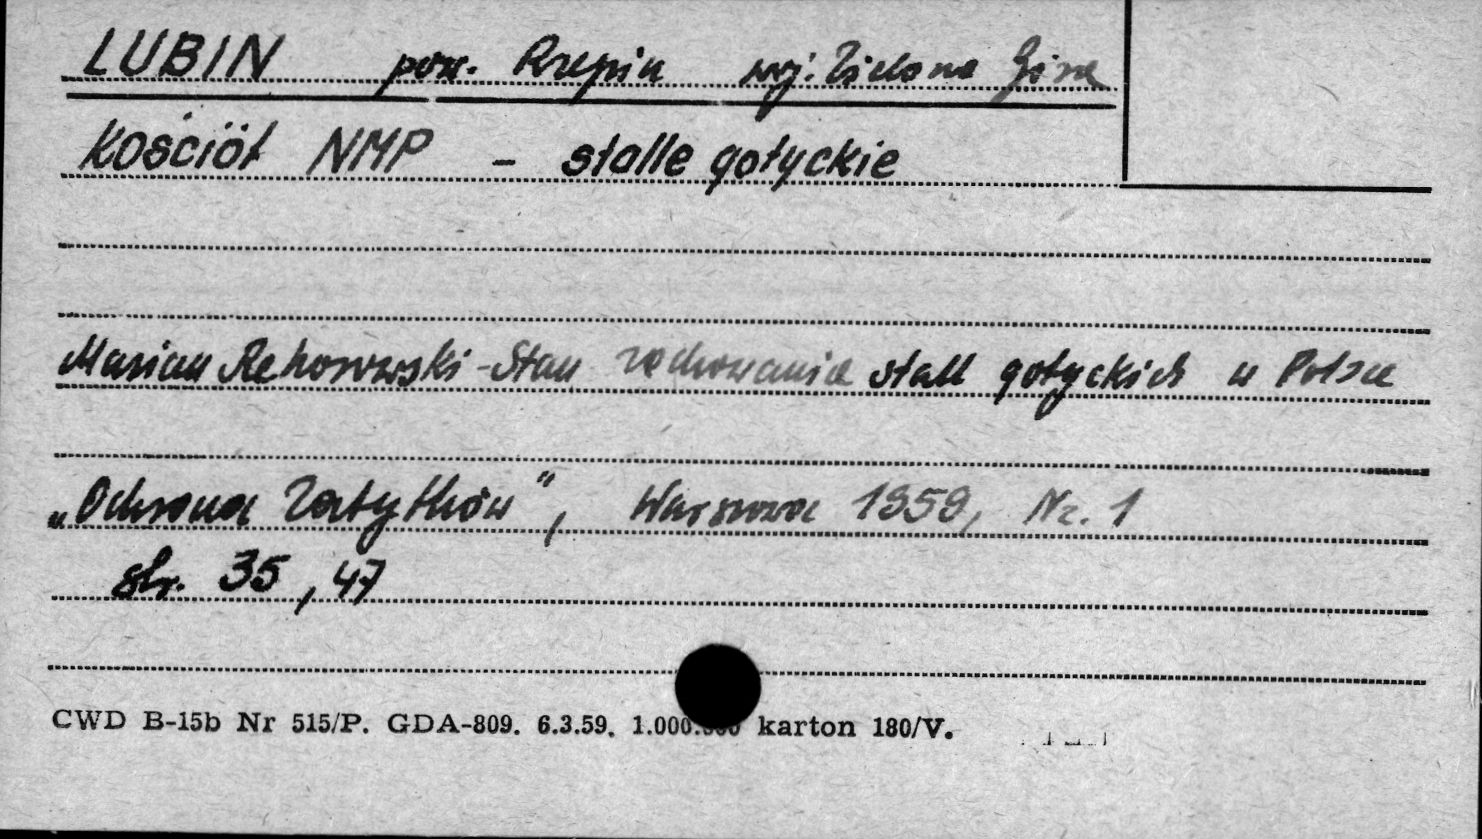 LUBIN pow. Rzepin woj. Zielona Góra
Kościół NMP - stalle gotyckie
Marian Rehorowski - Stan zachowania stall gotyckich w Polsce
„Ochrona Zabytków", Warszawa 1959, Nr. 1
str. 35, 47
CWD B-15b Nr 515/P. GDA-809. 6.3.59. 1.000.000 karton 180/V.